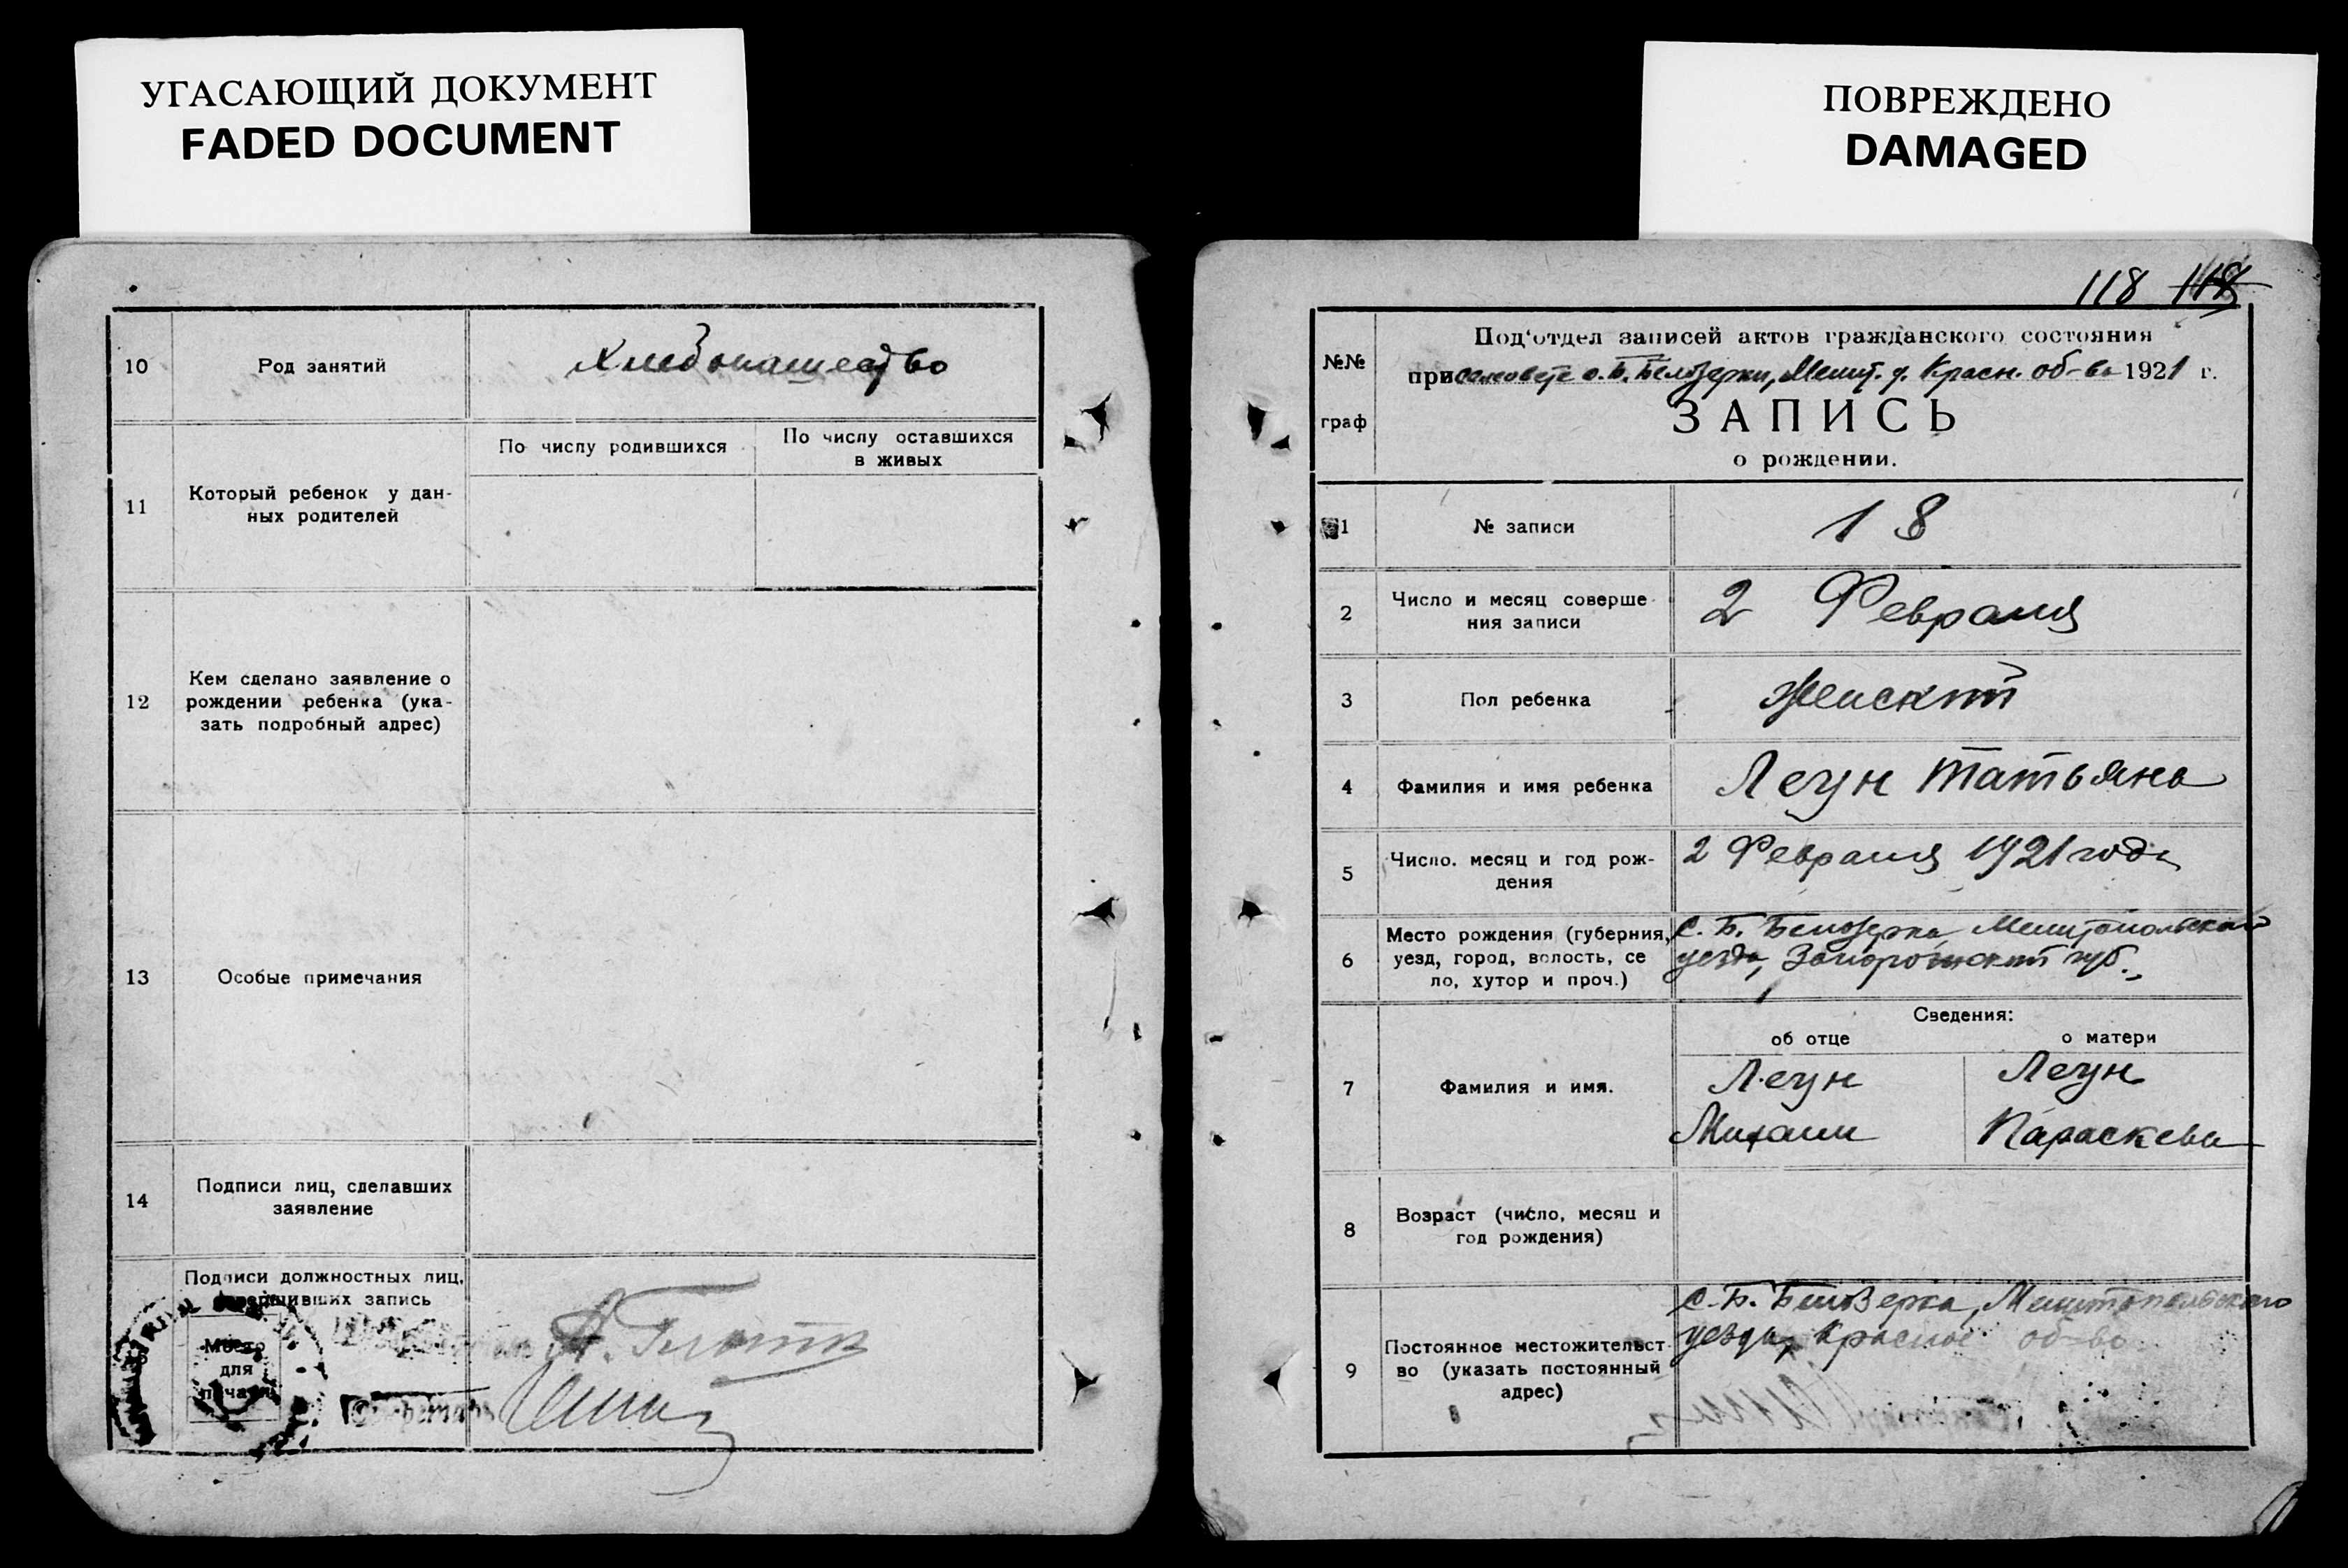 УГАСАЮЩИЙ ДОКУМЕНТ
FADED DOCUMENT
10
Род занятий
Хлебопашество
11
Который ребенок у дан-
ных родителей
По числу родившихся
По числу оставшихся
в живых
12
Кем сделано заявление о
рождении ребенка (ука-
зать подробный адрес)
13
Особые примечания
14
Подписи лиц, сделавших
заявление
Подписи должностных лиц,
совершивших запись
Место
для
печати
Секретарь
ПОВРЕЖДЕНО
DAMAGED
118 118
№№
граф
Под'отдел записей актов гражданского состояния
при сельсовете с. Б. Белозерки, Мелит. у. Красн. об-ва 1921 г.
ЗАПИСЬ
о рождении.
1
№ записи
18
2
Число и месяц соверше
ния записи
2 Февраля
3
Пол ребенка
Женский
4
Фамилия и имя ребенка
Легун Татьяна
5
Число. месяц и год рож-
дения
2 Февраля 1921 года
6
Место рождения (губерния,
уезд, город, волость, се
ло, хутор и проч.)
С. Б. Белозерка, Мелитопольского
уезда, Запорожский губ.
Сведения:
об отце
о матери
7
Фамилия и имя.
Легун
Михаил
Легун
Параскева
8
Возраст (число, месяц и
год рождения)
9
Постоянное местожительст-
во (указать постоянный
адрес)
С. Б. Белозерка, Мелитопольского
уезда, Красное об-во